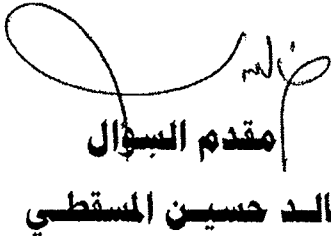 مقدم السؤال
الد حسين المسقطي